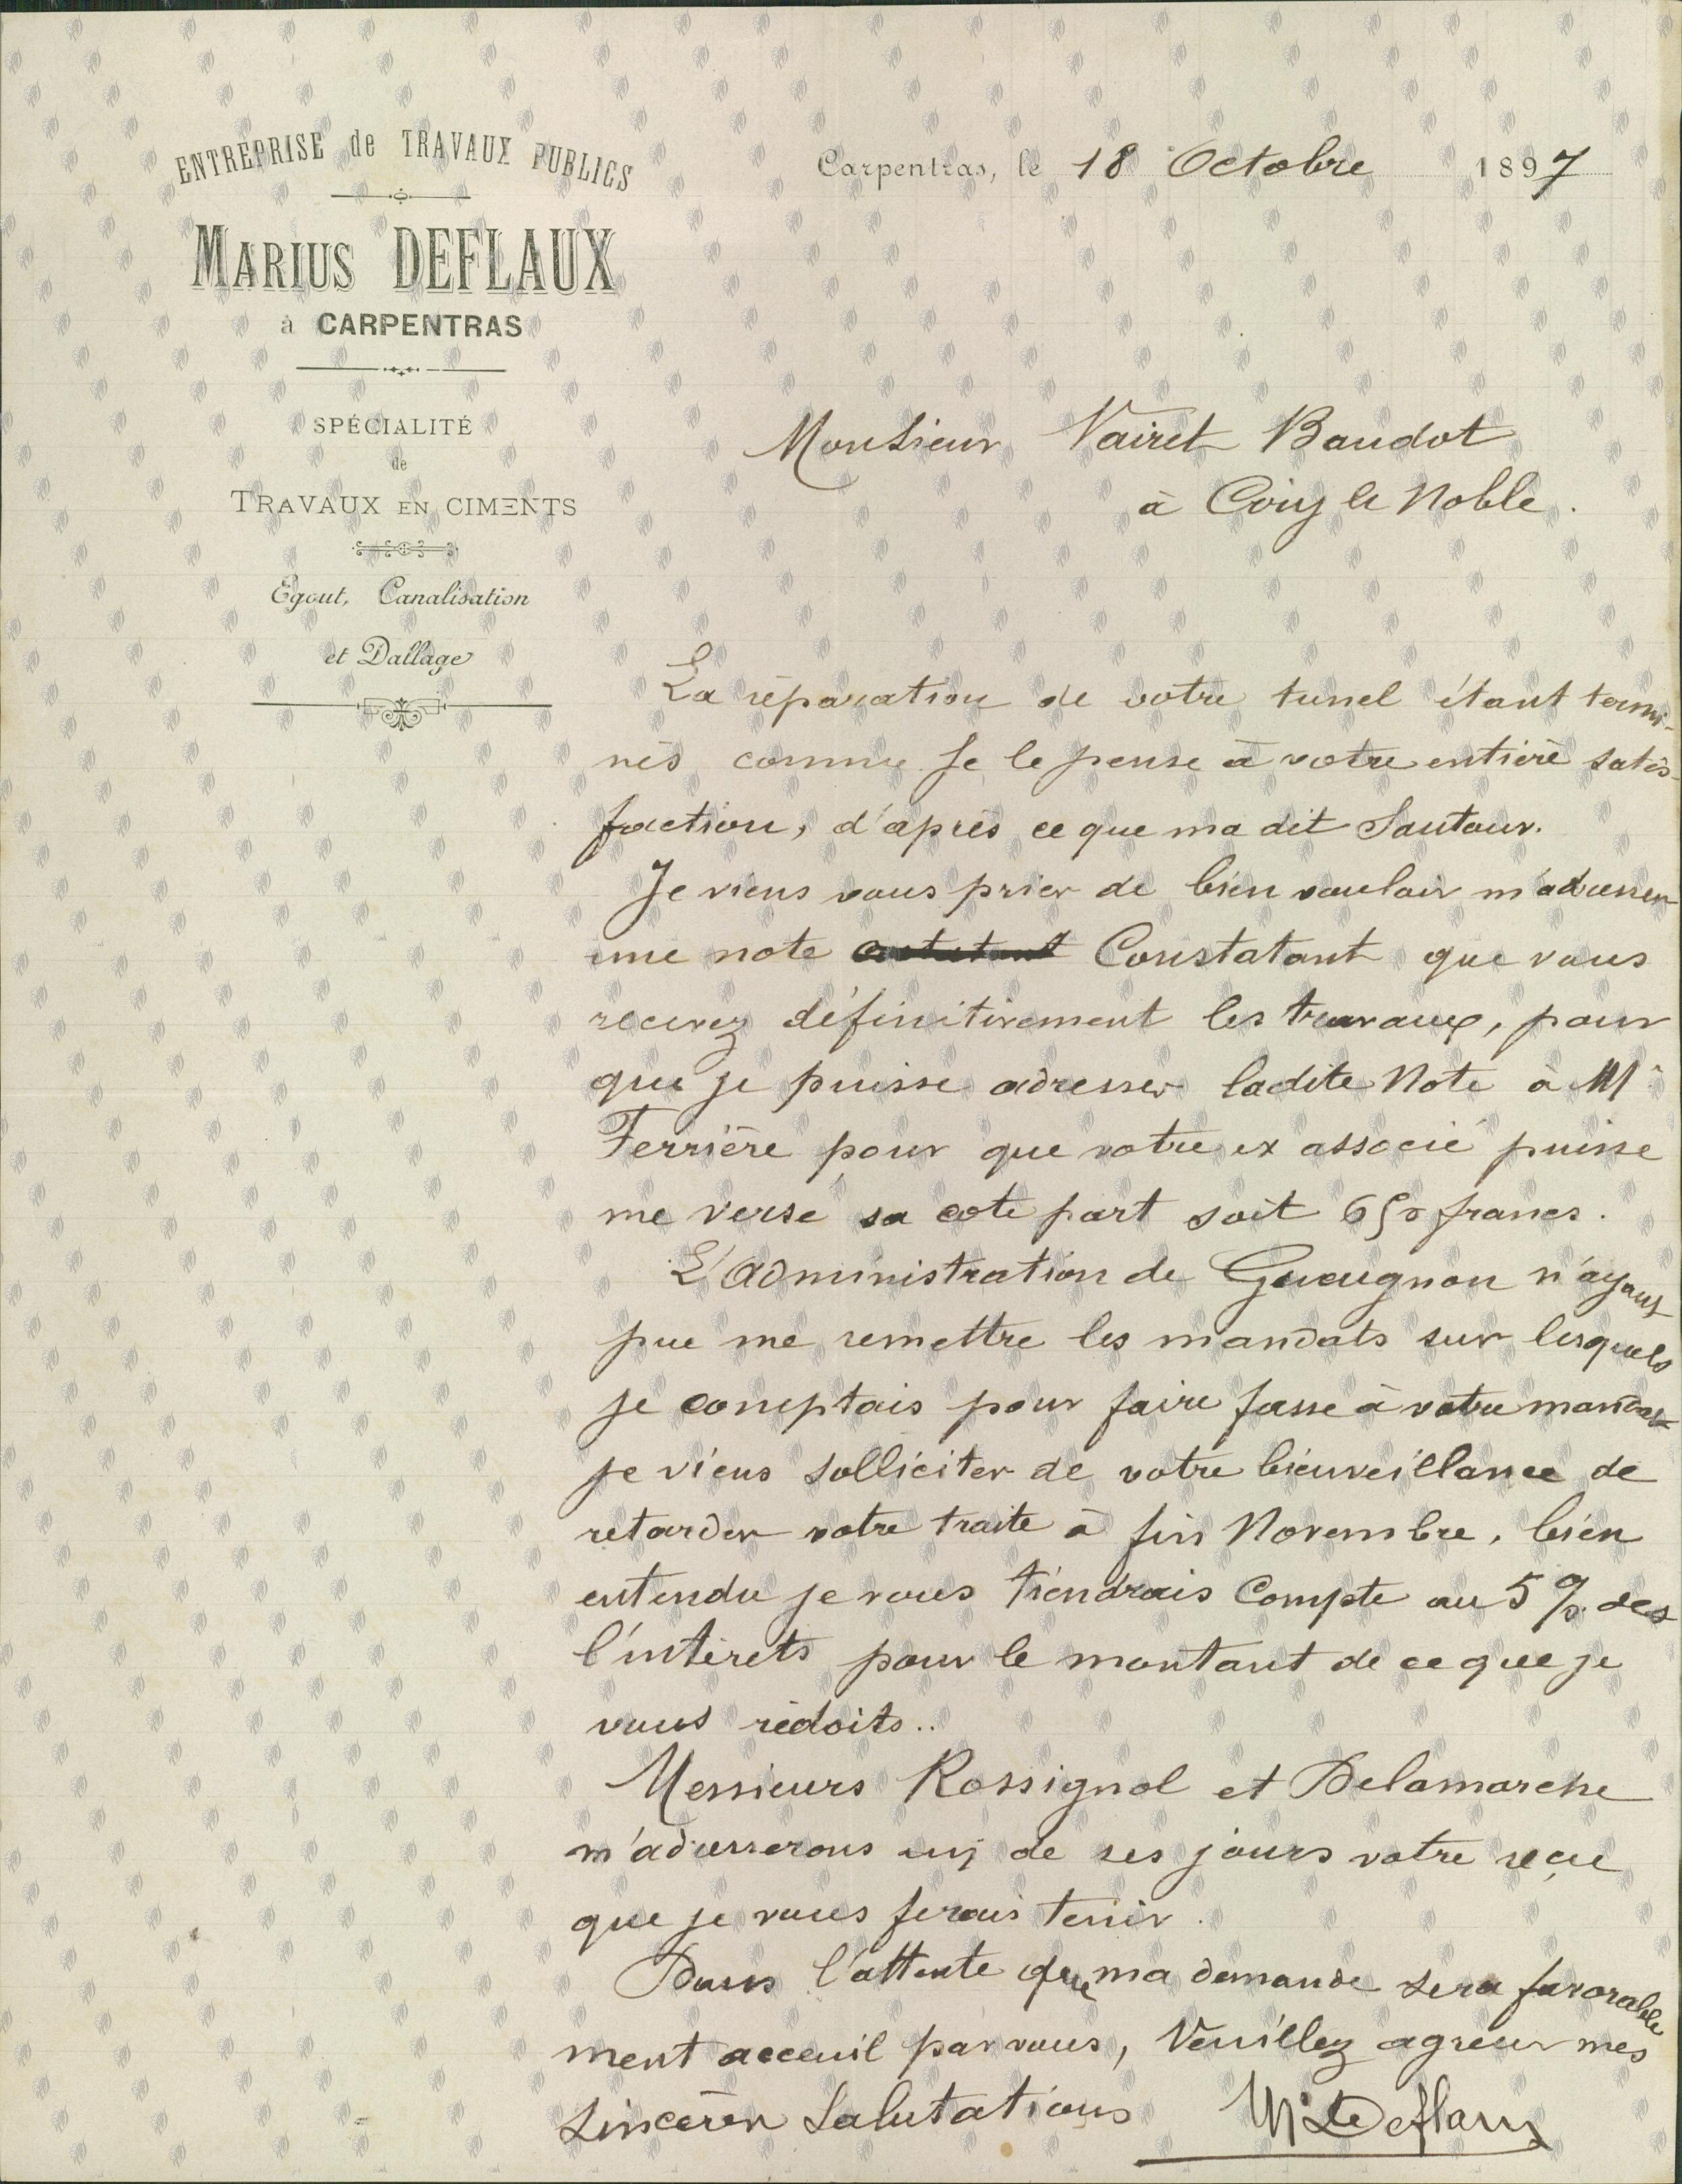 ENTREPRISE de TRAVAUX PUBLICS
MARIUS DEFLAUX
à CARPENTRAS
SPÉCIALITÉ
de
TRAVAUX EN CIMENTS
Egout, Canalisation
et Dallage
Carpentras, le 18 Octobre 1897
Monsieur Vairet Baudot
à Ciry le Noble.
La réparation de votre tunel étant termi-
nés comme je le pense à votre entière satis-
faction, d'après ce que ma dit Sautour.
Je viens vous prier de bien vouloir m'adresser
une note Constatant que vous
recevez définitivement les travaux, pour
que je puisse adresser ladite Note à Mr
Ferrière pour que votre ex associé puisse
me versé sa cote part soit 650 francs.
L'Administration de Gueugnon n'ayant
pue me remettre les mandats sur lesquels
je comptais pour faire fasse à votre mandat
je viens solliciter de votre bienveillance de
retarder votre traite à fin Novembre, bien
entendu je vous tiendrais Compte au 5 % des
l'intérets pour le montant de ce que je
vous redoits..
Messieurs Rossignol et Delamarche
m'adresserons un de ses jours votre reçue
que je vous ferais tenir.
Dans l'attente que ma demande sera favorable
ment acceuil par vous, Veuillez agréer mes
sincères Salutations Ms Deflaux